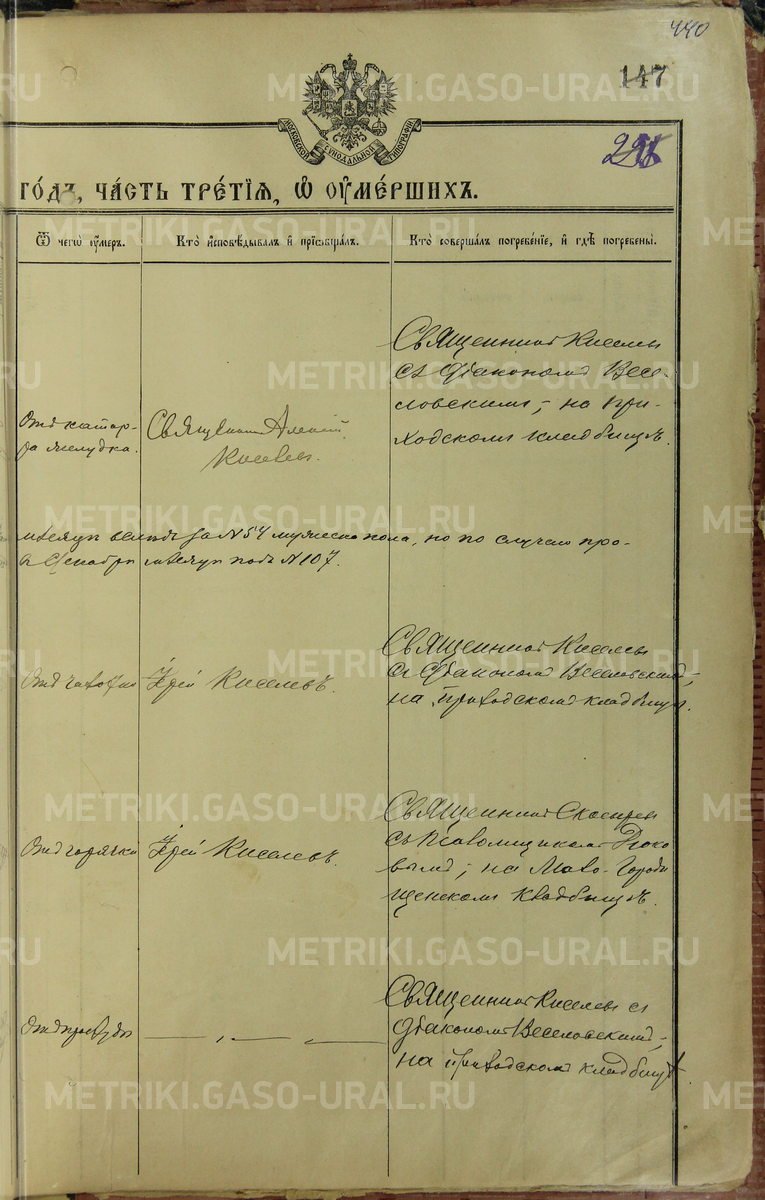 440
147
МОСКОВСКОЙ СѴНОДАЛЬНОЙ ТИПОГРАФІИ
го́дъ, ча́сть тре́тїѧ, ѡ оу҆ме́ршихъ.
Ѿ чегѡ̀ оу҆́меръ.
Кто̀ и҆сповѣ́дывалъ и҆ прїѡбща́лъ.
Кто̀ соверша́лъ погребе́нїе, и҆ гдѣ̀ погребены̀.
Отъ катар-
ра желудка.
Священникъ Алексій
Киселевъ.
Священникъ Киселевъ
съ Діакономъ Весе-
ловскимъ, на при-
ходскомъ кладбищѣ.
за N 54 мужеска пола, но по случаю про-
въ Декабрѣ мѣсяцѣ подъ N 107.
Отъ чахотки
Іерей Киселевъ.
Священникъ Киселевъ
съ Діакономъ Веселовскимъ,
на приходскомъ кладбищѣ.
Отъ горячки
Іерей Киселевъ.
Священникъ
съ Псаломщикомъ
вымъ; на Мало-Городи
щенскомъ кладбищѣ.
Отъ простуды
— „ — „ —
Священникъ Киселевъ съ
Діакономъ Веселовскимъ,
на приходскомъ кладбищѣ
METRIKI.GASO-URAL.RU